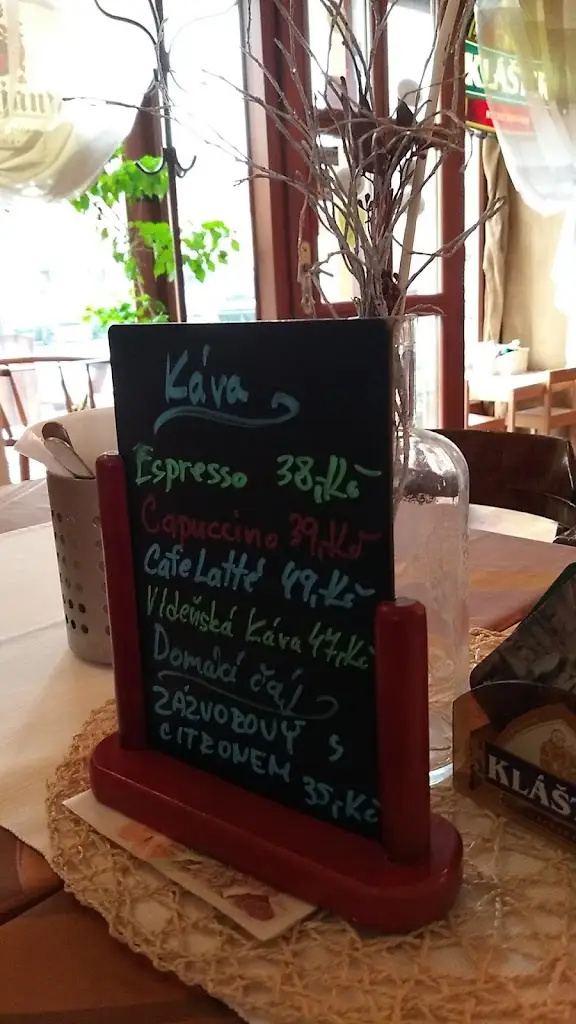 KLÁŠTER
Káva
Espresso 38,-Kč
Capuccino 39,-Kč
Cafe Latté 49,-Kč
Vídeňská káva 47,-Kč
Domácí čaj
ZÁZVOROVÝ S
CITRONEM 35,-Kč
KLÁŠT